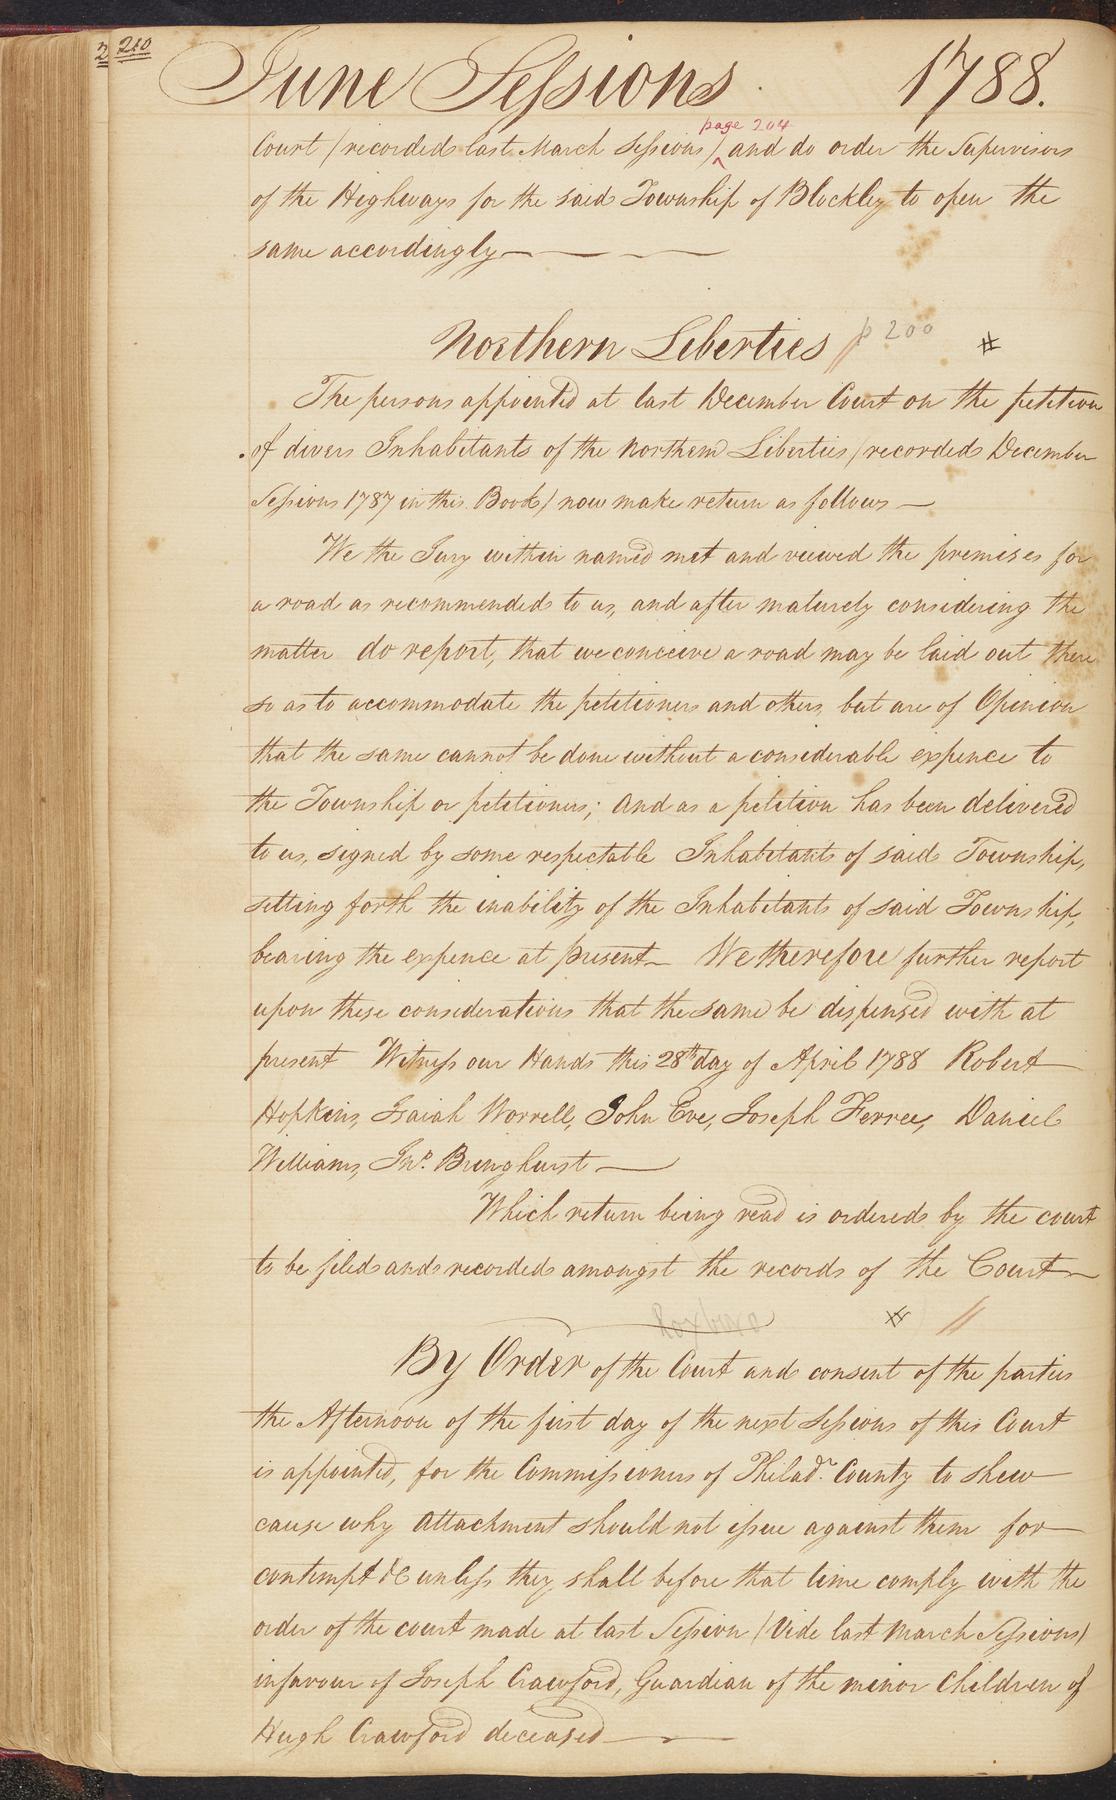 210
June Sessions. 1788.
page 204
Court (recorded last March Sessions) ^ and do order the Supervisors
of the Highways for the said Township of Blockley to open the
same accordingly
Northern Liberties // p 200 #
The persons appointed at last December Court on the petition
of divers Inhabitants of the Northern Liberties (recorded December
Sessions 1787 in this Book) now make return as follows —
We the Jury within named met and viewed the premises for
a road as recommended to us, and after maturely considering the
matter do report, that we conceive a road may be laid out there
so as to accommodate the petitioners and others, but are of Opinion
that the same cannot be done without a considerable expence to
the Township or petitioners; and as a petition has been delivered
to us, signed by some respectable Inhabitants of said Township,
setting forth the inability of the Inhabitants of said Township,
bearing the expence at present — We therefore further report
upon these considerations that the same be dispensed with at
present Witness our Hands this 28th day of April 1788 Robert
Hopkins, Isaiah Worrell, John Eve, Joseph Ferree, Daniel
Williams, Jno. Bringhurst —
Which return being read is ordered by the court
to be filed and recorded amongst the records of the Court —
Roxboro # //
By Order of the Court and consent of the parties
the Afternoon of the first day of the next Sessions of this Court
is appointed, for the Commissioners of Philada. County to shew
cause why attachment should not issue against them for
contempt &c unless they shall before that time comply with the
order of the court made at last Session (Vide last March Sessions)
in favour of Joseph Crawford, Guardian of the minor Children of
Hugh Crawford deceased —